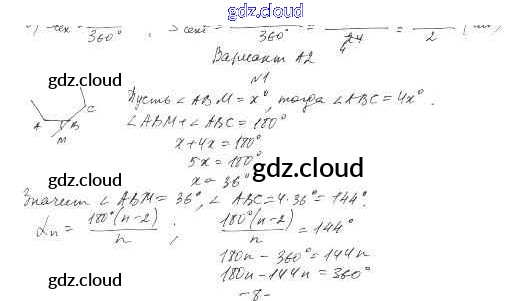 gdz.cloud
360° , Sсект = 360° = 24 = 2
4
Вариант А2
№1
gdz.cloud
gdz.cloud
Пусть ∠ABM = x°, тогда ∠ABC = 4x°.
C
A B
M
∠ABM + ∠ABC = 180°
x + 4x = 180°
5x = 180°
gdz.cloud
x = 36°
gdz.cloud
Значит ∠ABM = 36°, ∠ABC = 4·36° = 144°.
αn = 180°(n-2)/n ; 180°(n-2)/n = 144°
gdz.cloud
180n - 360° = 144n
gdz.cloud
180n - 144n = 360°
gdz.cloud
- 8 -